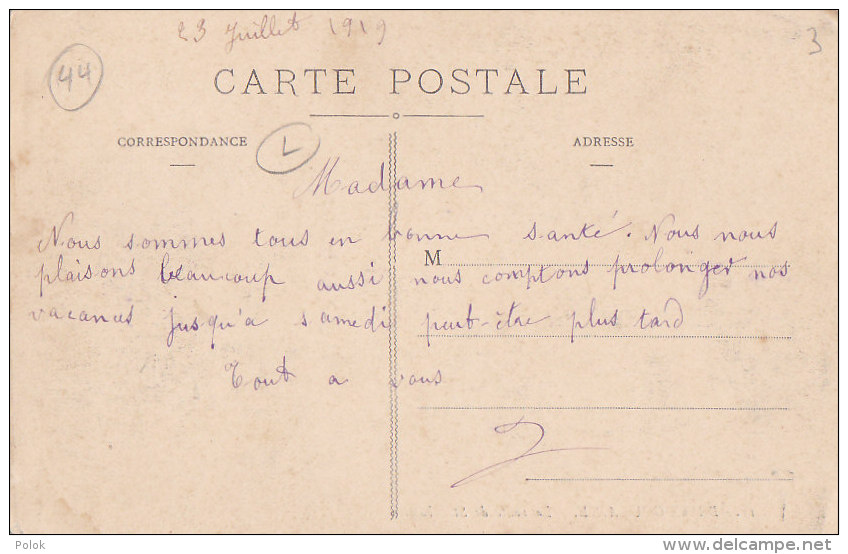 23 Juillet 1919
3
44
CARTE POSTALE
CORRESPONDANCE
L
ADRESSE
Madame
Nous sommes tous en bonne santé. Nous nous
M
plaisons beaucoup aussi nous comptons prolonger nos
vacances jusqu'a samedi peut-être plus tard
Tout a vous
Polok
delcampe.net